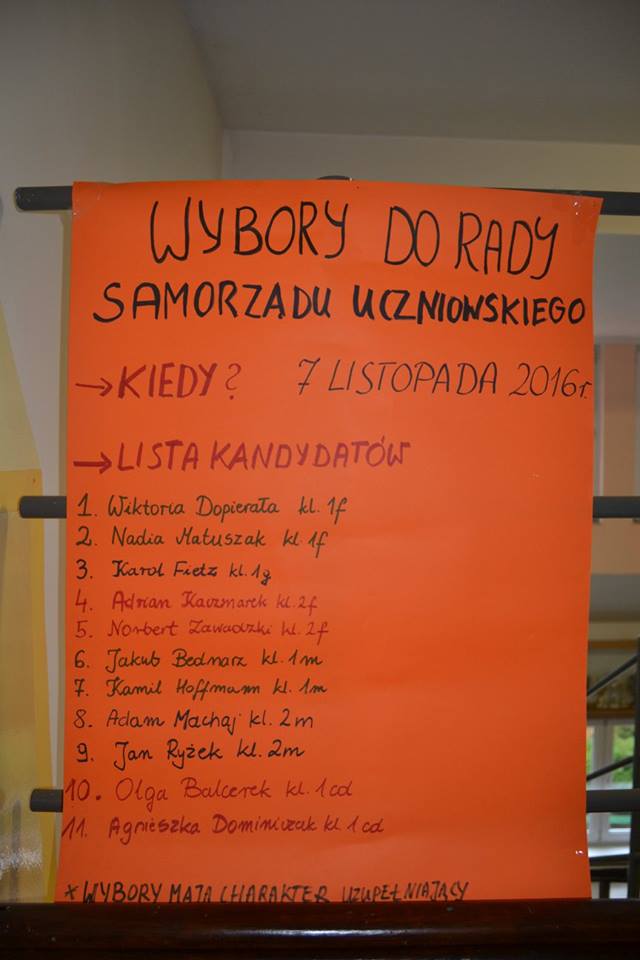 WYBORY DO RADY
SAMORZĄDU UCZNIOWSKIEGO
→ KIEDY? 7 LISTOPADA 2016r.
→ LISTA KANDYDATÓW
1. Wiktoria Dopierała kl. 1f
2. Nadia Matuszak kl. 1f
3. Karol Fietz kl. 1g
4. Adrian Kaczmarek kl. 2f
5. Norbert Zawadzki kl. 2f
6. Jakub Bednarz kl. 1m
7. Kamil Hoffmann kl. 1m
8. Adam Machaj kl. 2m
9. Jan Ryżek kl. 2m
10. Olga Balcerek kl. 1cd
11. Agnieszka Dominiczak kl 1cd
* WYBORY MAJĄ CHARAKTER UZUPEŁNIAJĄCY